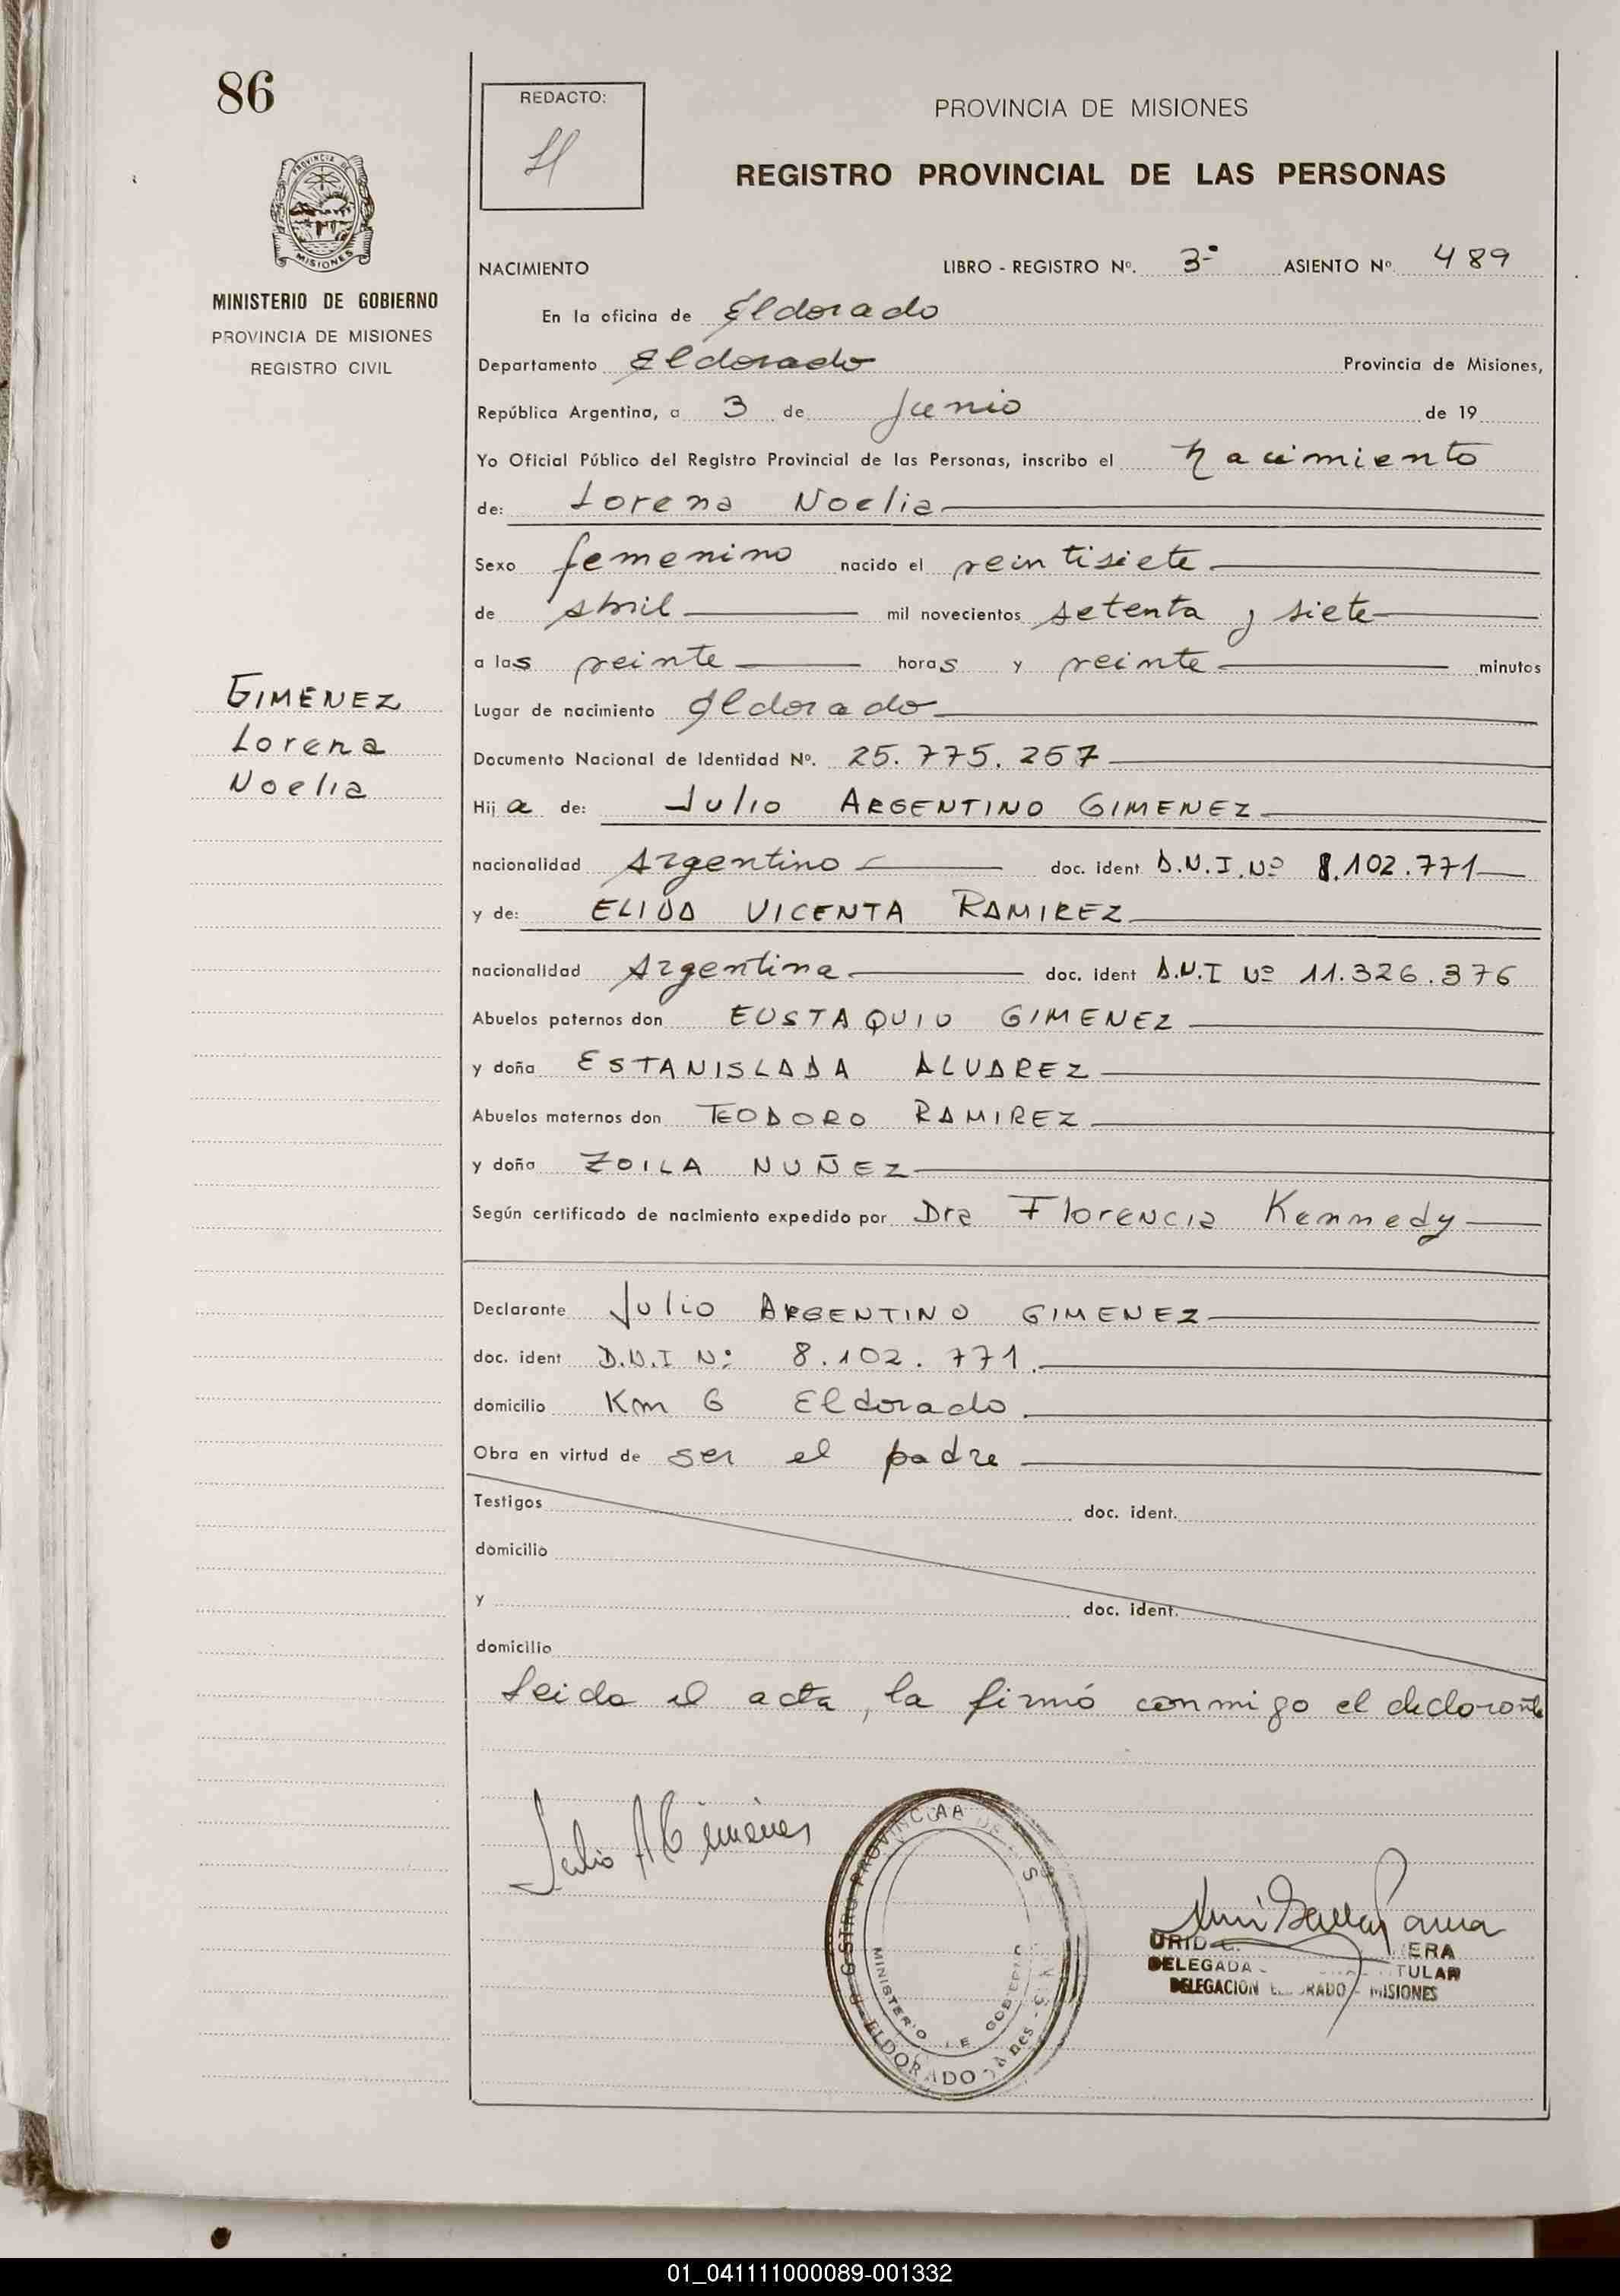 86
REDACTO:
PROVINCIA DE MISIONES
REGISTRO PROVINCIAL DE LAS PERSONAS
PROVINCIA DE
MISIONES
MINISTERIO DE GOBIERNO
PROVINCIA DE MISIONES
REGISTRO CIVIL
NACIMIENTO LIBRO - REGISTRO Nº. 3º ASIENTO Nº 489
En la oficina de Eldorado
Departamento Eldorado Provincia de Misiones,
República Argentina, a 3 de Junio de 19
Yo Oficial Público del Registro Provincial de las Personas, inscribo el nacimiento
de: Lorena Noelia
Sexo femenino nacido el veintisiete
de abril mil novecientos setenta y siete
a las veinte horas y veinte minutos
GIMENEZ
Lorena
Noelia
Lugar de nacimiento Eldorado
Documento Nacional de Identidad Nº. 25.775.257
Hija de: Julio ARGENTINO GIMENEZ
nacionalidad Argentino doc. ident D.N.I. Nº 8.102.771
y de: ELIDA VICENTA RAMIREZ
nacionalidad Argentina doc. ident D.N.I Nº 11.326.376
Abuelos paternos don EUSTAQUIO GIMENEZ
y doña ESTANISLADA ALVAREZ
Abuelos maternos don TEODORO RAMIREZ
y doña ZOILA NUÑEZ
Según certificado de nacimiento expedido por Dra Florencia Kennedy
Declarante Julio ARGENTINO GIMENEZ
doc. ident D.N.I Nº 8.102.771.
domicilio Km 6 Eldorado
Obra en virtud de ser el padre
Testigos doc. ident.
domicilio
y doc. ident.
domicilio
Leida el acta, la firmó conmigo el declarante
Julio A Gimenez
MINISTERIO DE GOBIERNO
ELDORADO
DELEGADA TITULAR
DELEGACION ELDORADO - MISIONES
01_041111000089-001332